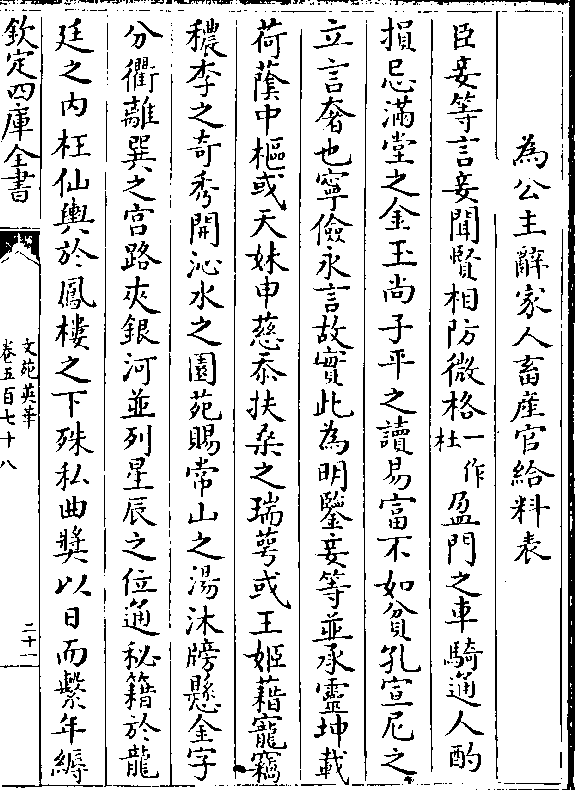 為公主辭家人畜産官給料表
臣妾等言妾聞賢相防微格一作杜盈門之車騎通人酌
損忌滿堂之金玉尚子平之讀易富不如貧孔宣尼之
立言奢也寧儉永言故實此為明鑒妾等並承靈坤載
荷蔭中樞或天妹申慈忝扶桑之瑞蕚或王姬藉寵竊
穠李之竒秀開沁水之園苑賜常山之湯沐牓懸金字
分衢離巽之宫路夾銀河並列星辰之位通秘籍於龍
廷之内枉仙輿於鳳樓之下殊私曲奬以日而繫年縟
欽定四庫全書
文苑英華
卷五百七十八
二十一